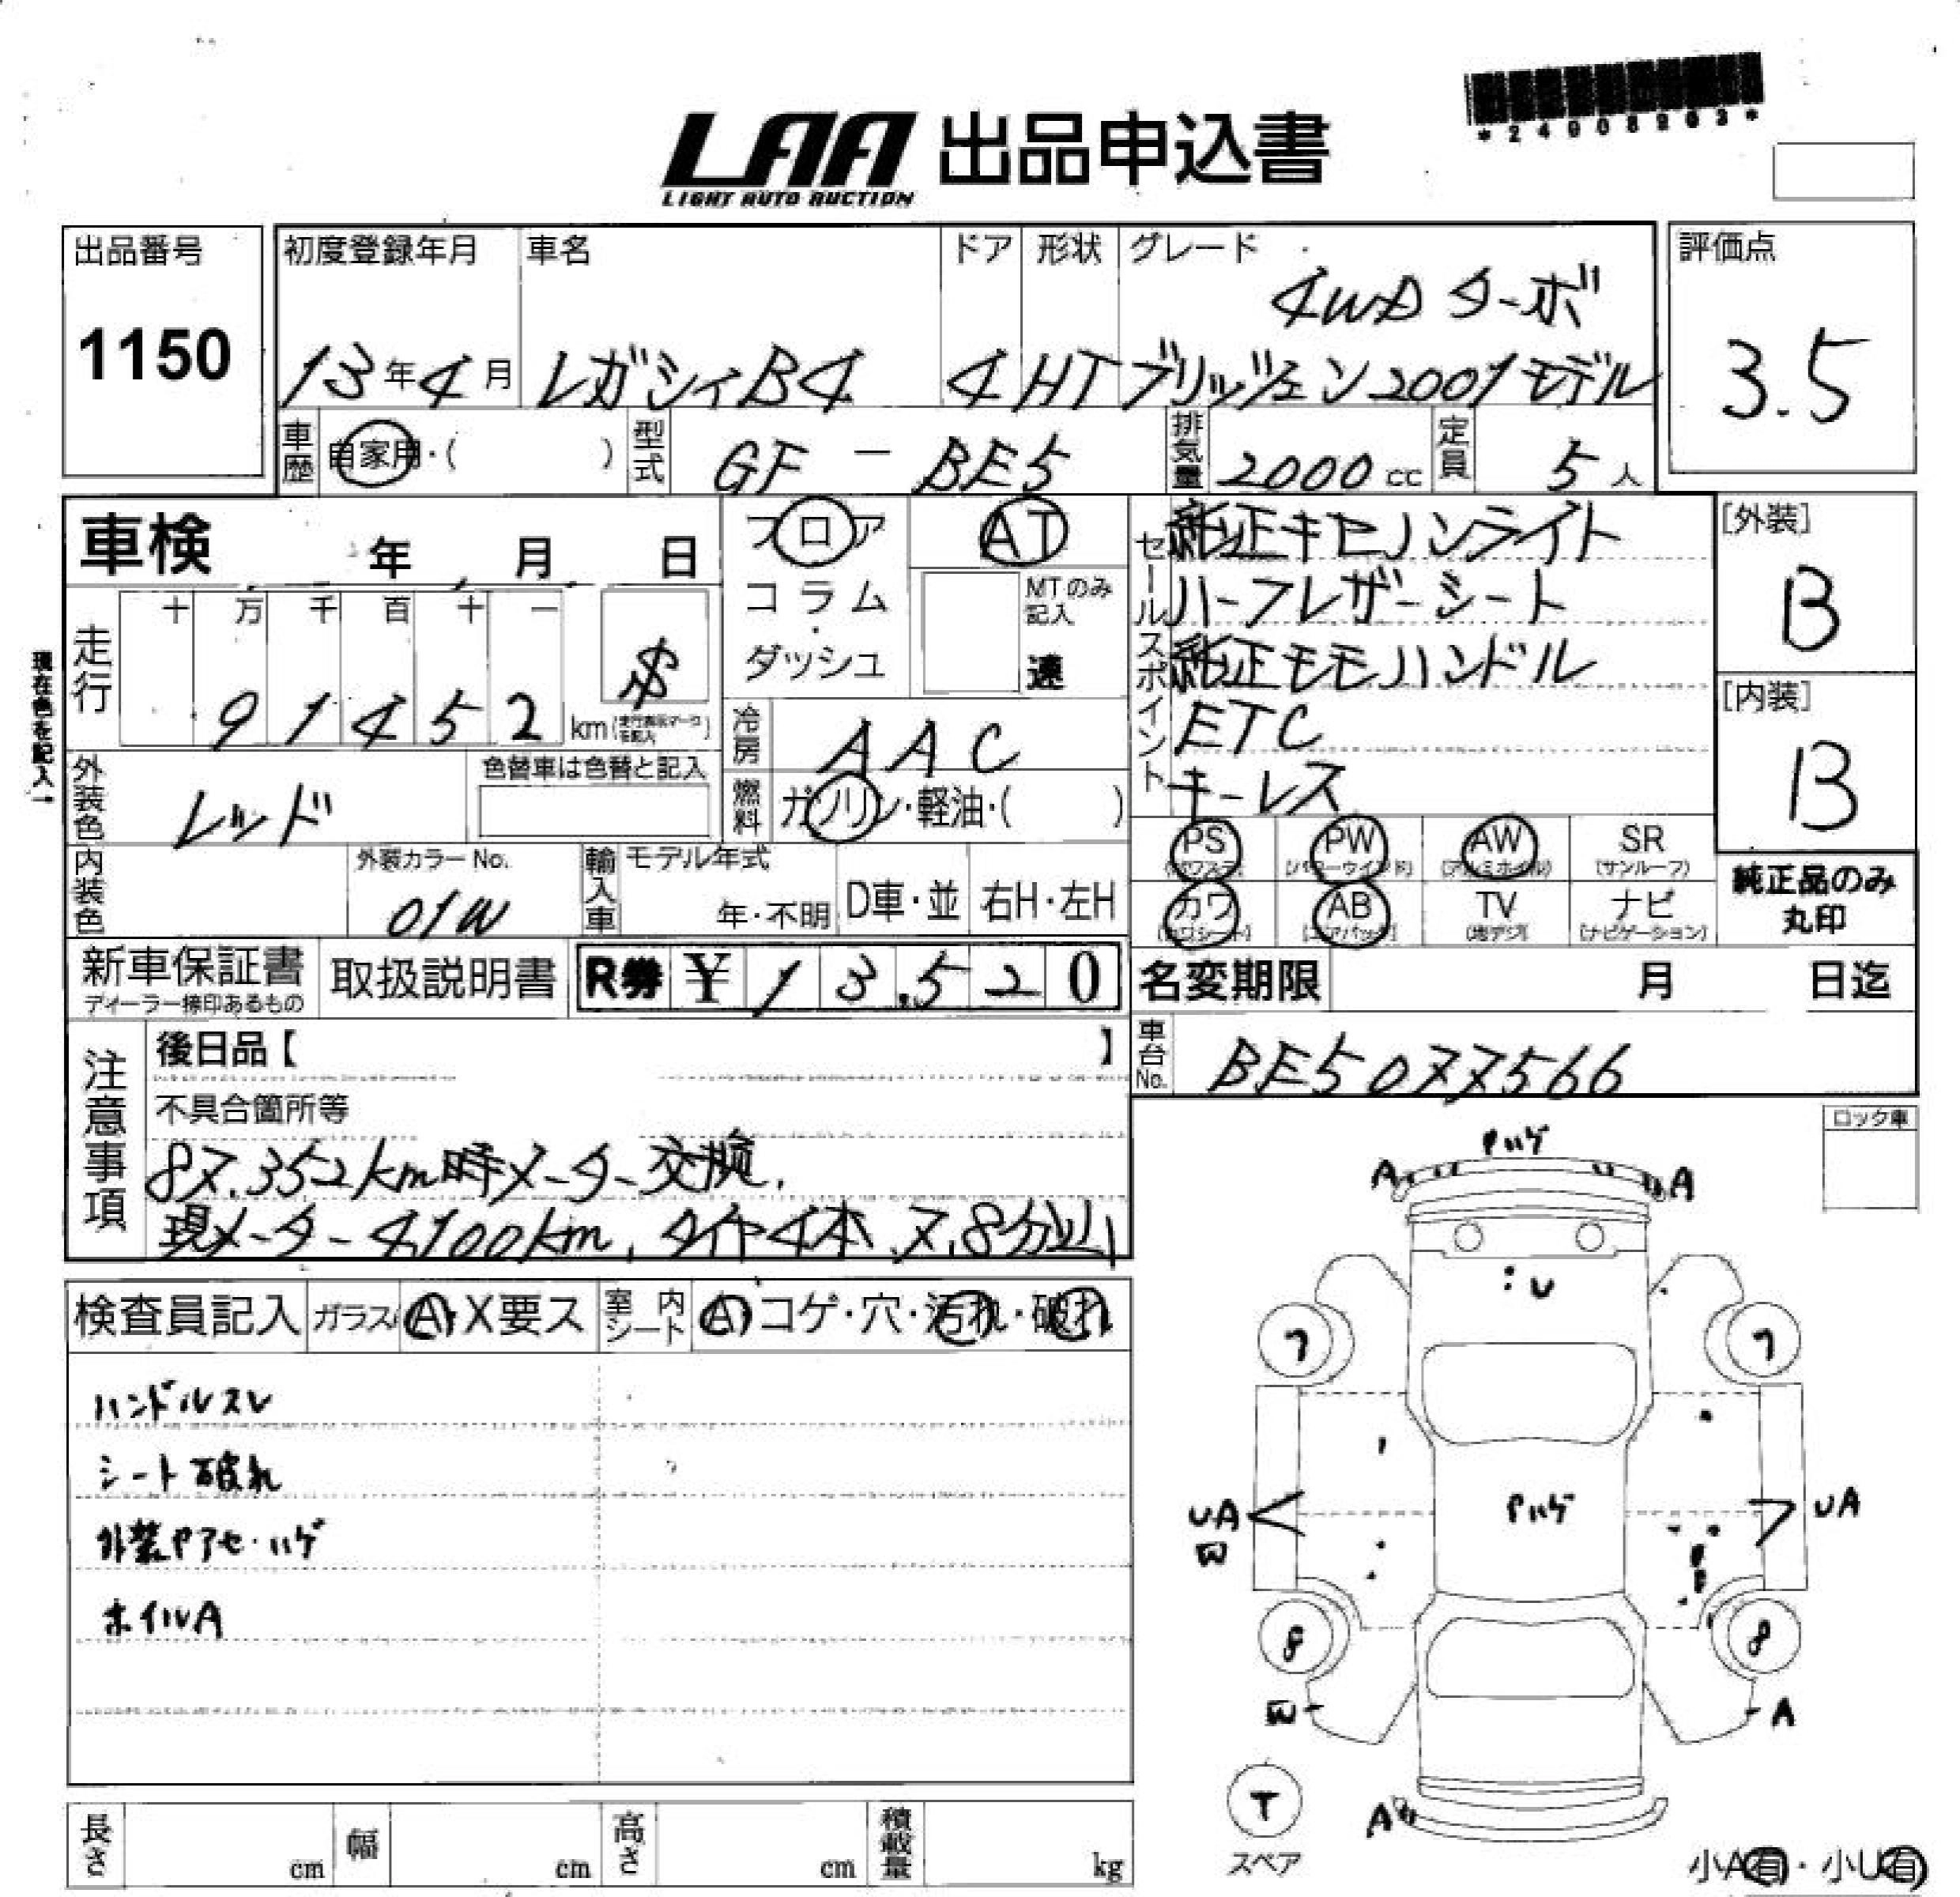 *24908903*
LAA 出品申込書
LIGHT AUTO AUCTION
出品番号
1150
初度登録年月
13年4月
車名
レガシィB4
ドア
4
形状
HT
グレード
4WD ターボ
ブリッツェン2001モデル
評価点
3.5
車歴
自家用・( )
型式
GF - BE5
排気量
2000 cc
定員
5 人
車検 年 月 日
フロア
コラム
・
ダッシュ
AT
MTのみ
記入
速
セールスポイント
純正キセノンライト
ハーフレザーシート
純正モモハンドル
ETC
キーレス
[外装]
B
[内装]
B
純正品のみ
丸印
現在色を記入→
走行
十 万 千 百 十 一
9 1 4 5 2
$
km
冷房
AAC
燃料
ガソリン・軽油・( )
外装色
レッド
色替車は色替と記入
内装色
外装カラーNo.
01W
輸入車
モデル年式
年・不明
D車・並
右H・左H
PS
(パワステ)
PW
(パワーウインド)
AW
(アルミホイル)
SR
(サンルーフ)
カワ
(カワシート)
AB
(エアバッグ)
TV
(地デジ)
ナビ
(ナビゲーション)
新車保証書
ディーラー捺印あるもの
取扱説明書
R券 ¥ 1 3 5 2 0
名変期限 月 日迄
車台No.
BE5077566
注意事項
後日品【 】
不具合箇所等
87.352km時メーター交換.
現メーター4,100km, タイヤ4本 7,8分山
ロック車
検査員記入
ガラス A・X要ス
室内シート
A・コゲ・穴・汚れ・破れ
ハンドルスレ
シート破れ
外装Pアセ・ハゲ
ホイルA
Pハゲ
A
A
U
7
7
UA
W
Pハゲ
UA
8
8
W
A
T
スペア
A
小A有・小U有
長さ cm
幅 cm
高さ cm
積載量 kg